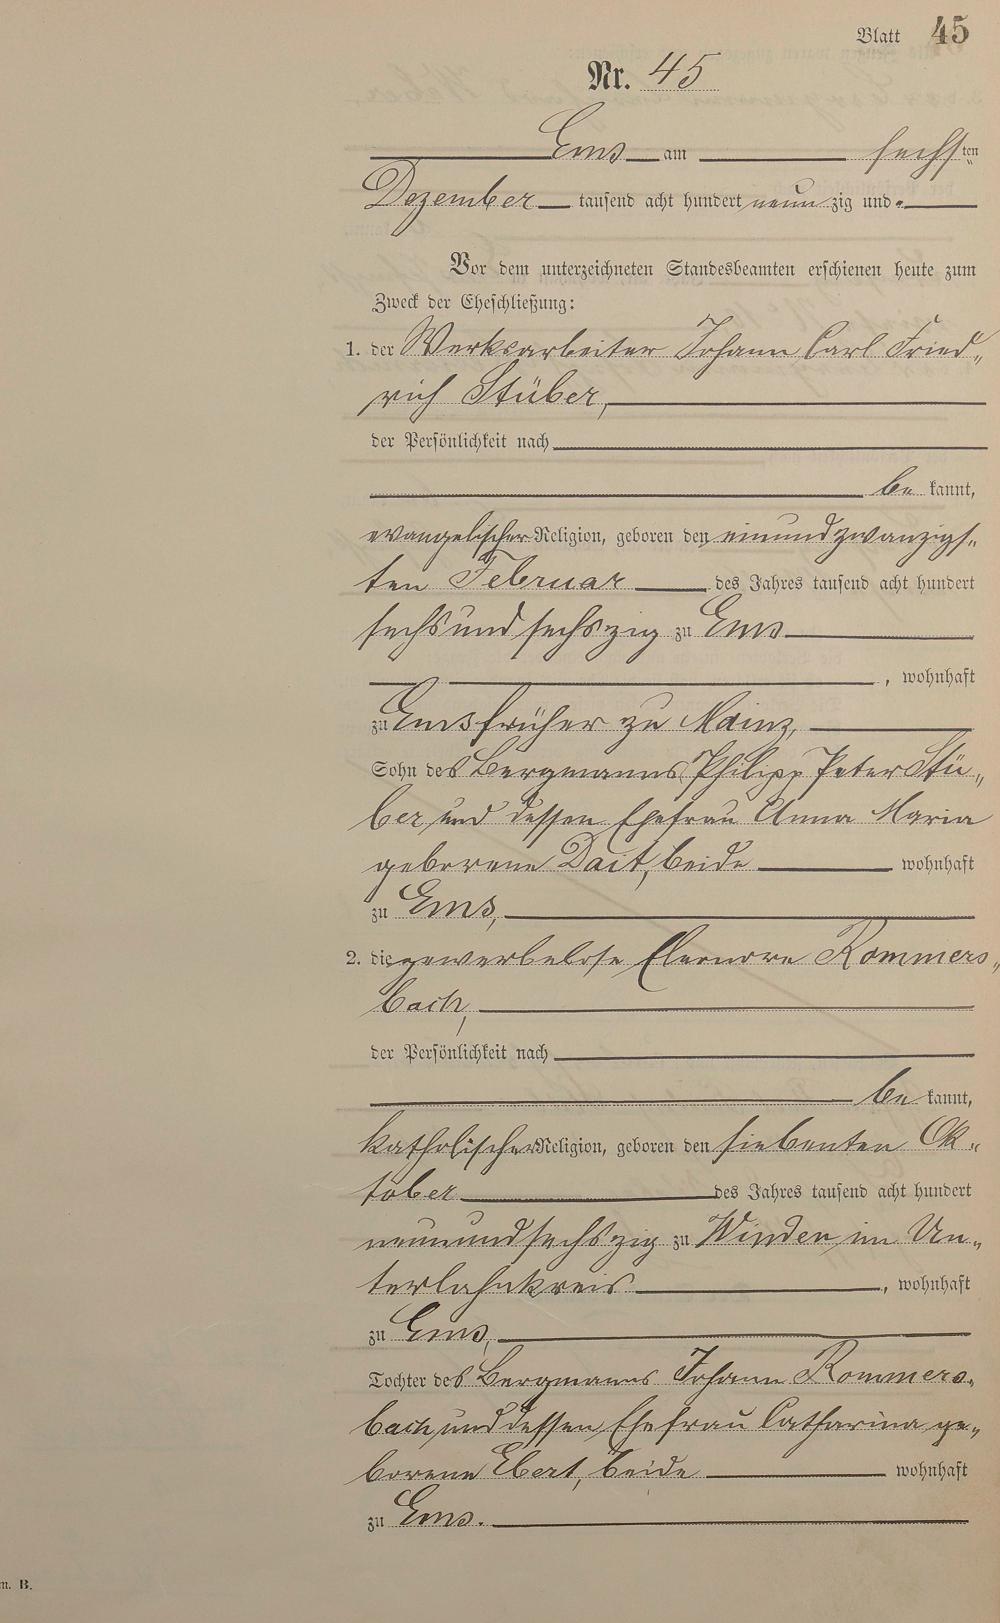 Blatt 45
Nr. 45
Ems am sechsten
Dezember tausend acht hundert neunzig und
Vor dem unterzeichneten Standesbeamten erschienen heute zum
Zweck der Eheschließung:
1. der Werksarbeiter Johann Carl Fried„
rich Stüber,
der Persönlichkeit nach
be kannt,
evangelischer Religion, geboren den einundzwanzigs„
ten Februar des Jahres tausend acht hundert
sechsundsechszig zu Ems
, wohnhaft
zu Ems früher zu Mainz,
Sohn des Bergmanns Philipp Peter Stü„
ber und dessen Ehefrau Anna Maria
geborene Dait, beide wohnhaft
zu Ems,
2. die gewerbelose Eleonore Rommers„
bach,
der Persönlichkeit nach
be kannt,
katholischer Religion, geboren den siebenten Ok„
tober des Jahres tausend acht hundert
neunundsechszig zu Winden im Un„
terlahnkreis, wohnhaft
zu Ems,
Tochter des Bergmanns Johann Rommers„
bach und dessen Ehefrau Catharina ge„
borene Ebert, beide wohnhaft
zu Ems.
B.